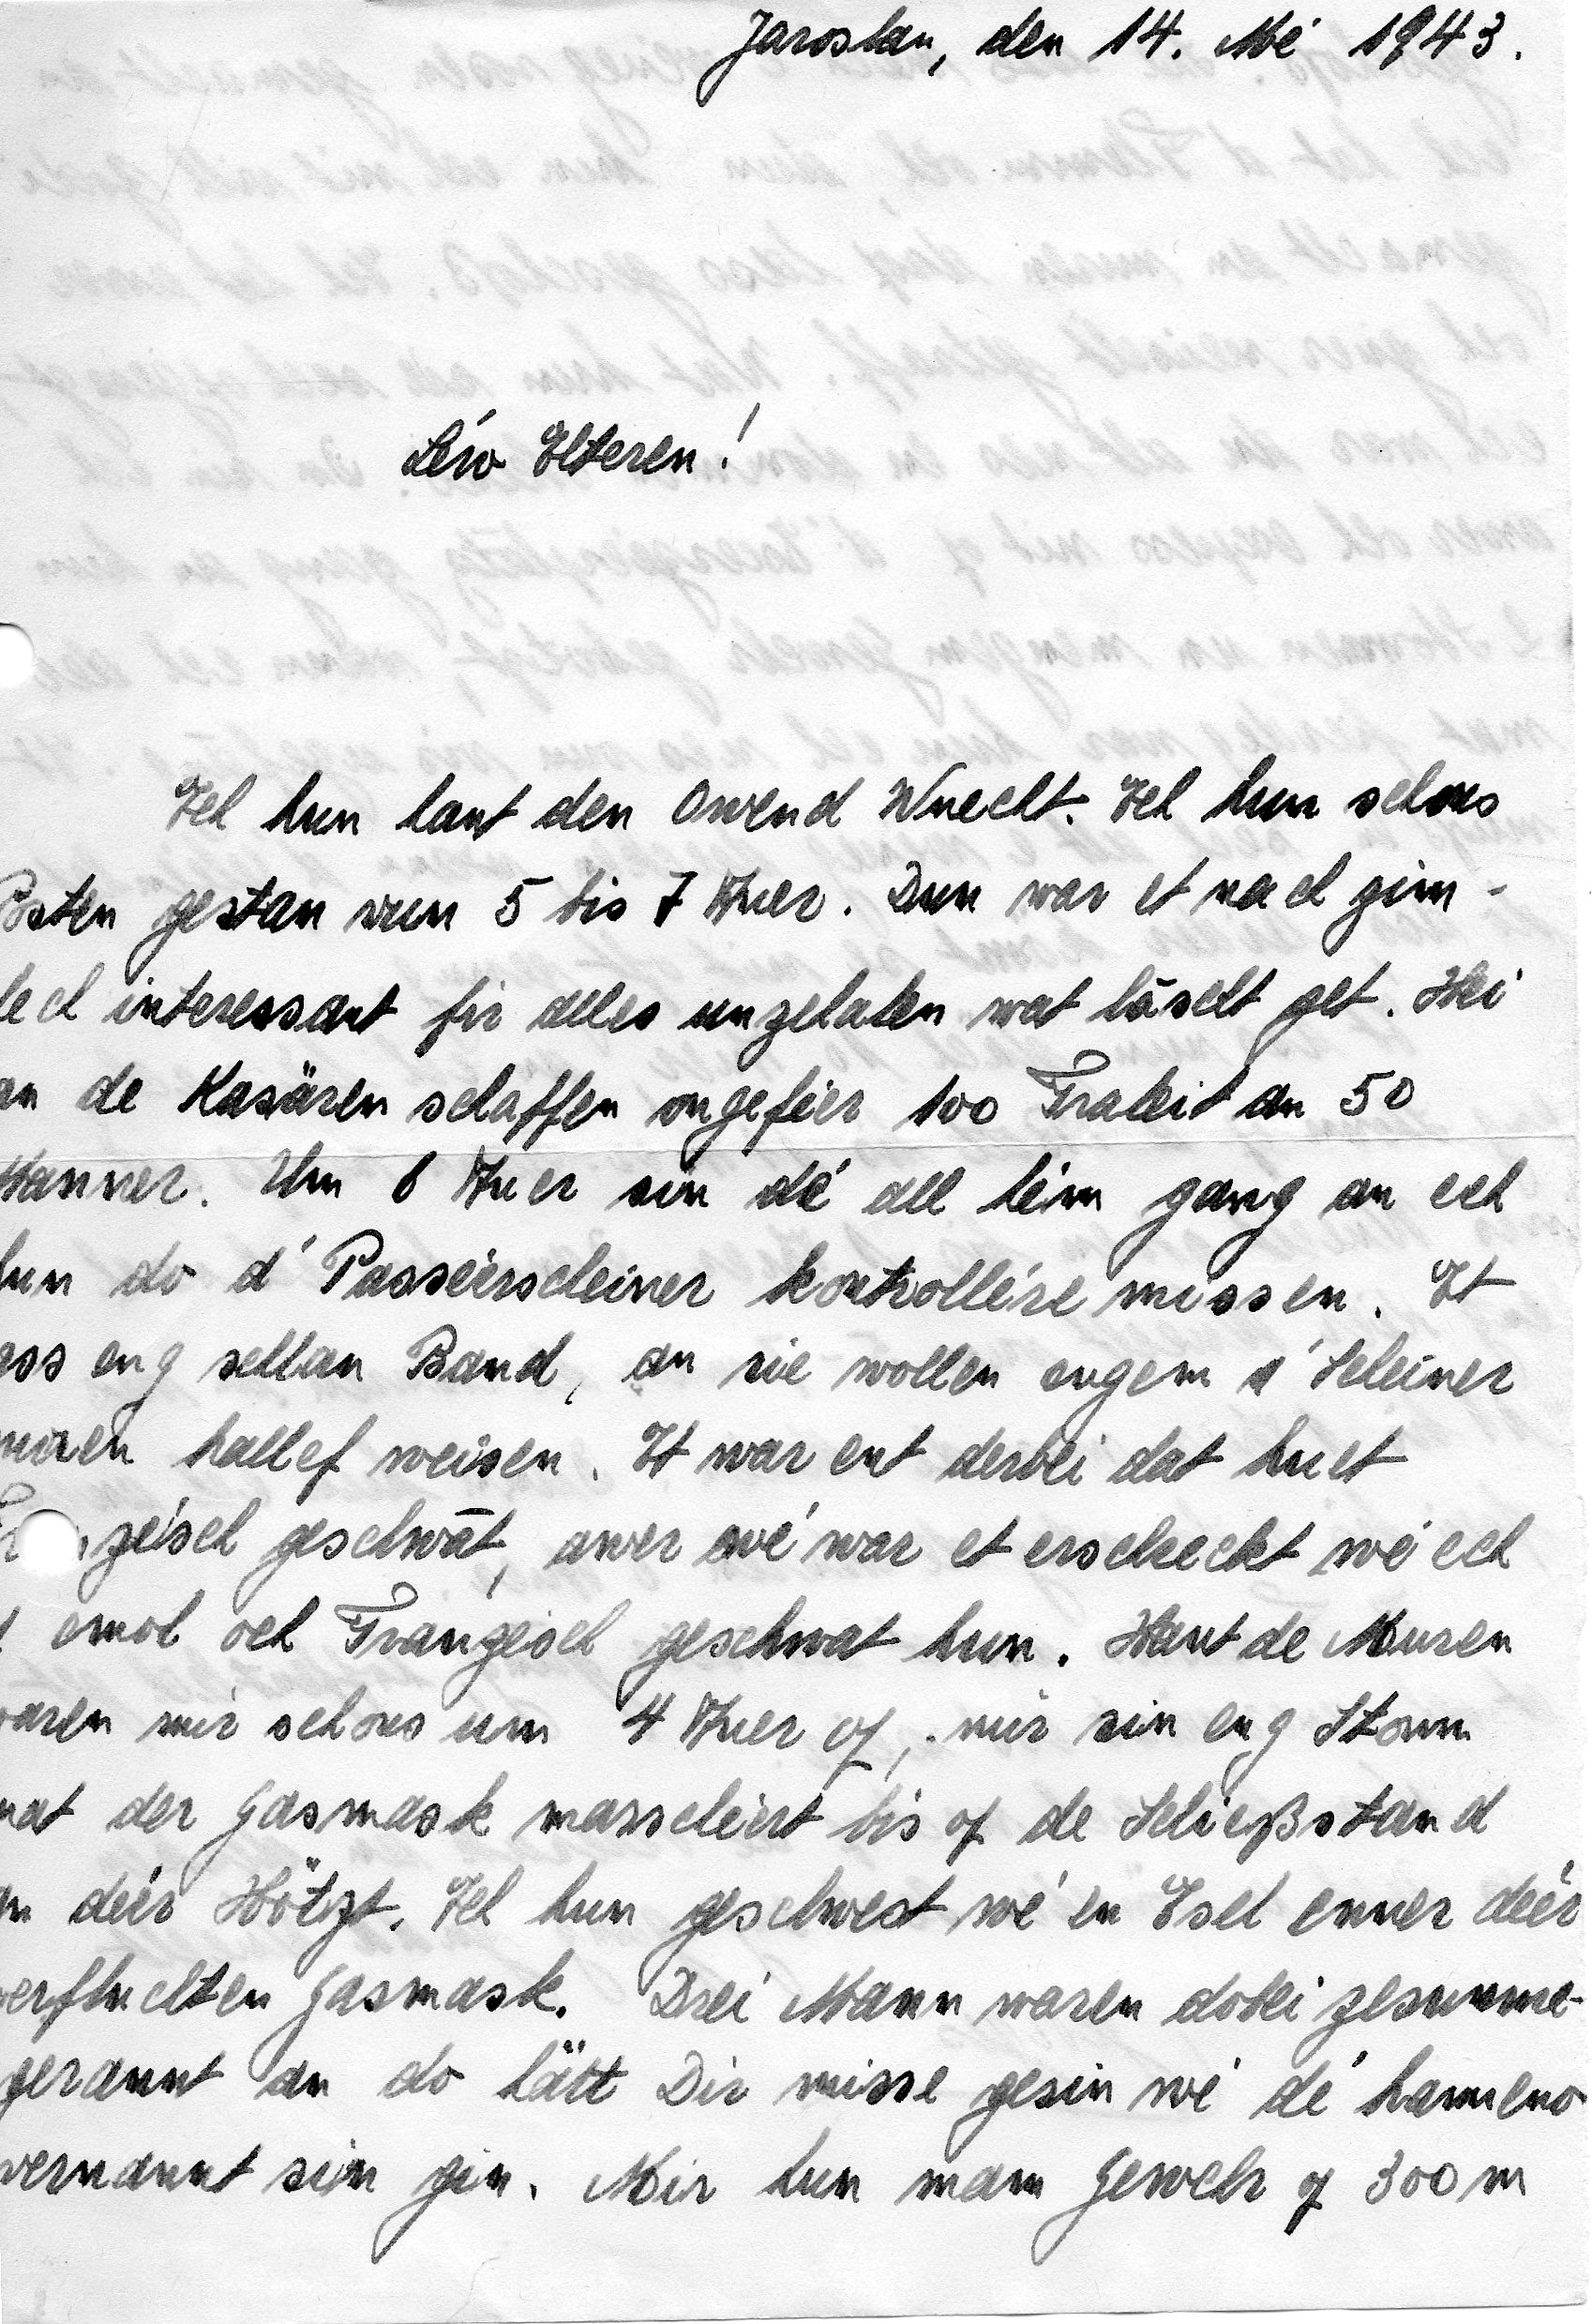 Jaroslau, den 14. Mé 1943.
Léiv Elteren!
Ech hun haut den Owend Wuecht. Ech hun schons
Posten gestan vun 5 bis 7 Auer. Dun war et nach zim-
lech interessant fir alles unzehalen wat lãscht get. Hei
an de Kasären schaffen ongeféier 100 Fraleit an 50
Männer. Um 6 Auer sin dé all héim gang an ech
hun do d'Passéierscheiner kontrolléire missen. Et
ass eng schlau Band, an sie wollen engem d'Scheiner
nuren hallef weisen. Et war ent derbei dat huet
Franzéisch geschwãt, awer wé war et erschreckt wé ech
emol och Franzéisch geschwat hun. Haut de Muren
waren mir schons um 4 Auer op, mir sin eng Stonn
mat der Gasmask marschéiert bis op de Schießstand
an déir Hëtzt. Ech hun geschwest wé en Esel enner déér
verfluchten Gasmask. Drei Mann waren dobei zesumme-
gerannt an do hätt Dir misse gesin wé dé hanneno
vernannt sin gin. Mir hun mam Gewehr op 300 m